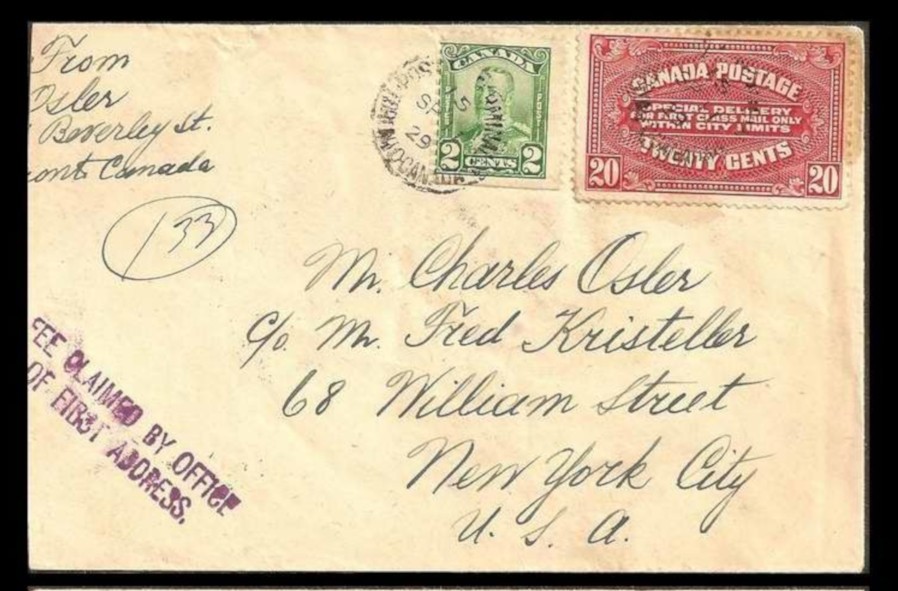 From
Osler
Beverley St.
ont Canada
133
CANADA
2 CENTS 2
SP 15
29
CANADA
CANADA POSTAGE
SPECIAL DELIVERY
FOR FIRST CLASS MAIL ONLY
WITHIN CITY LIMITS
TWENTY CENTS
20 20
Mr. Charles Osler
c/o Mr. Fred Kristeller
68 William Street
New York City
U. S. A.
FEE CLAIMED BY OFFICE
OF FIRST ADDRESS.